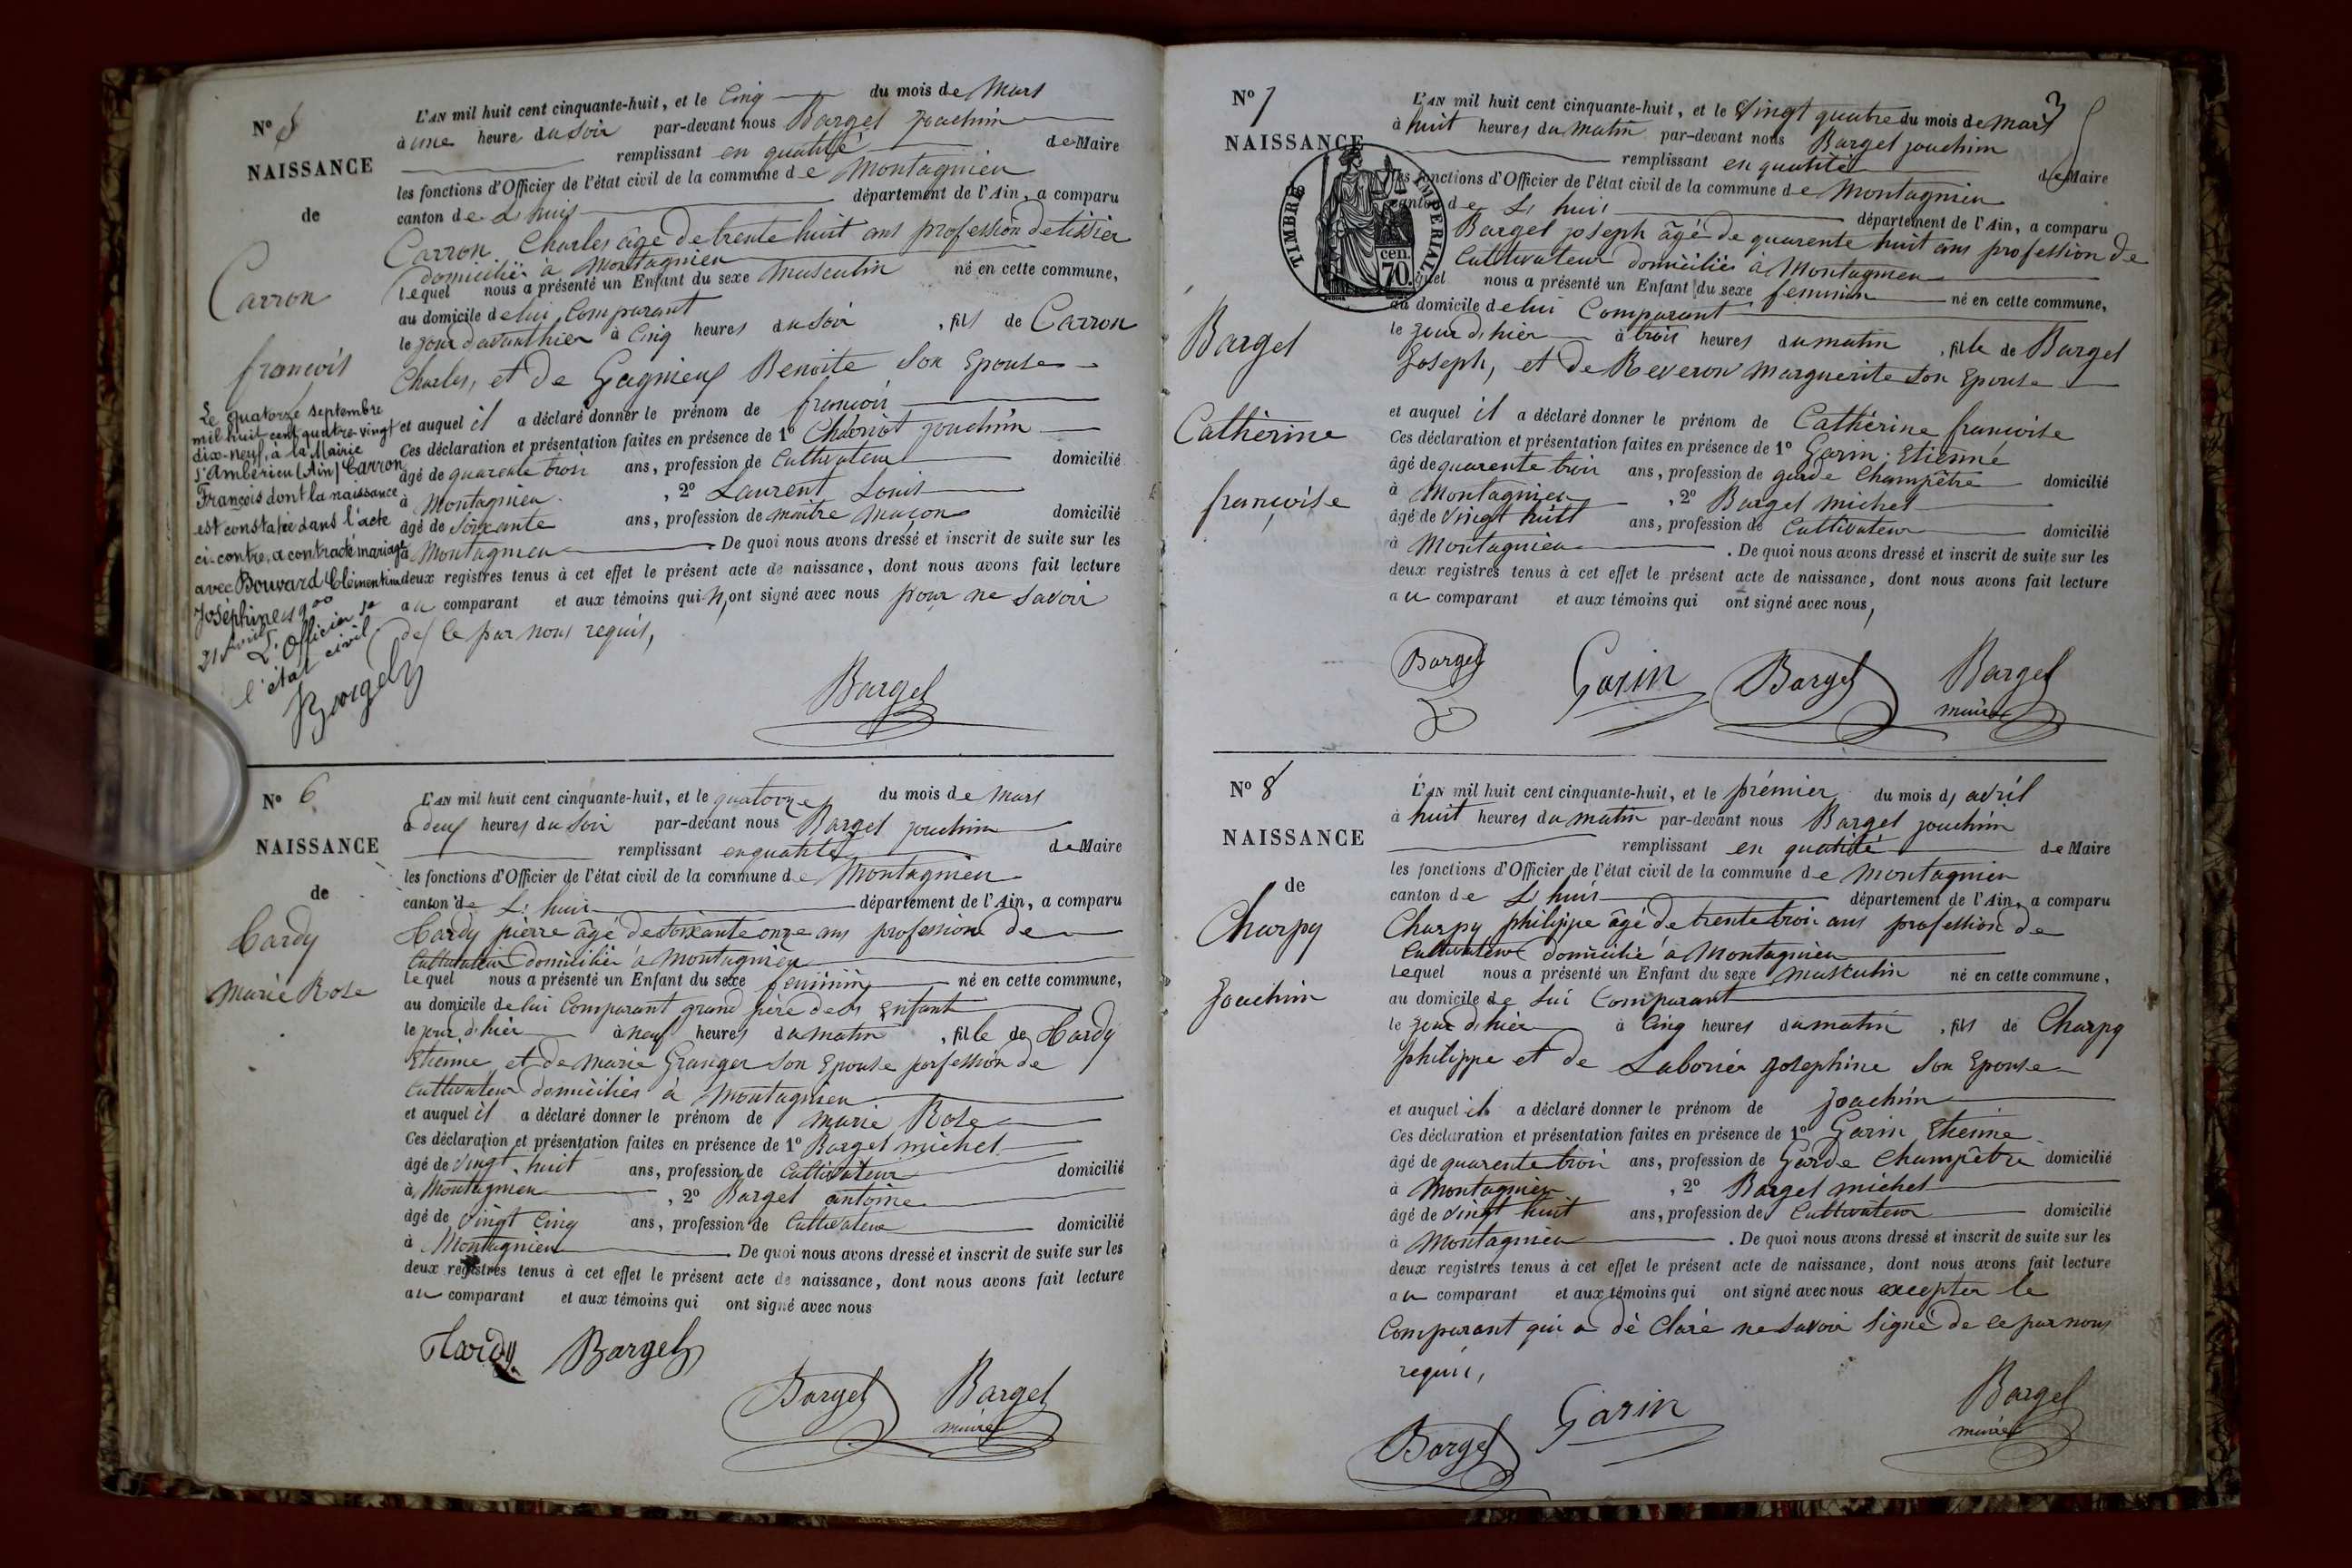 N° 5
NAISSANCE
de
Carron
françois
L'AN mil huit cent cinquante-huit, et le Cinq du mois de Mars
à une heure du Soir par-devant nous Bargel Joachim
remplissant en qualité de Maire
les fonctions d'Officier de l'état civil de la commune de Montagnieu
canton de L'huis département de l'Ain, a comparu
Carron Charles âgé de trente huit ans profession de tissier
domicilié à Montagnieu
lequel nous a présenté un Enfant du sexe masculin né en cette commune,
au domicile de lui Comparant
le jour d'avanthier à Cinq heures du Soir , fils de Carron
Charles, et de Gagnieux Benoite Son Epouse
et auquel il a déclaré donner le prénom de françois
Ces déclaration et présentation faites en présence de 1° Charriot Joachim
âgé de quarente trois ans, profession de Cultivateur domicilié
à Montagnieu , 2° Laurent Louis
âgé de Soixante ans, profession de maitre maçon domicilié
à Montagnieu . De quoi nous avons dressé et inscrit de suite sur les
deux registres tenus à cet effet le présent acte de naissance, dont nous avons fait lecture
au comparant et aux témoins qui N'ont signé avec nous pour ne Savoir
de ce par nous requis,
Bargel
Le quatorze septembre
mil huit cent quatre-vingt
dix-neuf, à la Mairie
d'Ambérieu (Ain) Carron
François dont la naissance
est constatée dans l'acte
ci-contre, a contracté mariage
avec Bouvard Clémentine
Joséphine
21 Avril
L'Officier de
l'état civil
N° 6
NAISSANCE
de
Hardy
Marie Rose
L'AN mil huit cent cinquante-huit, et le quatorze du mois de Mars
à deux heures du Soir par-devant nous Bargel Joachim
remplissant en qualité de Maire
les fonctions d'Officier de l'état civil de la commune de Montagnieu
canton de L'huis département de l'Ain, a comparu
Hardy pierre âgé de Soixante onze ans profession de
Cultivateur domicilié à Montagnieu
lequel nous a présenté un Enfant du sexe feminin né en cette commune,
au domicile de lui Comparant grand père de Enfant
le jour d'hier à neuf heures du matin , fille de Hardy
Etienne et de Marie Granger Son Epouse porfession de
Cultivateur domiciliés à Montagnieu
et auquel il a déclaré donner le prénom de Marie Rose
Ces déclaration et présentation faites en présence de 1° Bargel michel
âgé de vingt huit ans, profession de Cultivateur domicilié
à Montagnieu , 2° Bargel antoine
âgé de vingt Cinq ans, profession de Cultivateur domicilié
à Montagnieu . De quoi nous avons dressé et inscrit de suite sur les
deux registres tenus à cet effet le présent acte de naissance, dont nous avons fait lecture
au comparant et aux témoins qui ont signé avec nous
Hardy Bargel
Bargel Bargel
maire
3
N° 7
NAISSANCE
TIMBRE IMPERIAL
70 cen.
Bargel
Cathérine
françoise
L'AN mil huit cent cinquante-huit, et le Vingt quatre du mois de Mars
à huit heures du matin par-devant nous Bargel Joachim
remplissant en qualité de Maire
les fonctions d'Officier de l'état civil de la commune de Montagnieu
canton de L'huis département de l'Ain, a comparu
Bargel Joseph âgé de quarente huit ans profession de
Cultivateur domicilié à Montagnieu
lequel nous a présenté un Enfant du sexe feminin né en cette commune,
au domicile de lui Comparant
le jour d'hier à trois heures du matin , fille de Bargel
Joseph, et de Reveron Marguerite Son Epouse
et auquel il a déclaré donner le prénom de Cathérine françoise
Ces déclaration et présentation faites en présence de 1° Garin Etienne
âgé de quarente trois ans, profession de garde Champêtre domicilié
à Montagnieu , 2° Bargel michel
âgé de vingt huit ans, profession de Cultivateur domicilié
à Montagnieu . De quoi nous avons dressé et inscrit de suite sur les
deux registres tenus à cet effet le présent acte de naissance, dont nous avons fait lecture
au comparant et aux témoins qui ont signé avec nous,
Bargel Garin Bargel Bargel
maire
N° 8
NAISSANCE
de
Charpy
Joachim
L'AN mil huit cent cinquante-huit, et le prémier du mois d'avril
à huit heures du matin par-devant nous Bargel Joachim
remplissant en qualité de Maire
les fonctions d'Officier de l'état civil de la commune de Montagnieu
canton de L'huis département de l'Ain, a comparu
Charpy philippe âgé de trente trois ans profession de
Cultivateur domicilié à Montagnieu
lequel nous a présenté un Enfant du sexe masculin né en cette commune,
au domicile de lui Comparant
le jour d'hier à Cinq heures du matin , fils de Charpy
philippe et de Laborier Josephine Son Epouse
et auquel il a déclaré donner le prénom de Joachim
Ces déclaration et présentation faites en présence de 1° Garin Etienne
âgé de quarente trois ans, profession de Garde Champêtre domicilié
à Montagnieu , 2° Bargel michel
âgé de vingt huit ans, profession de Cultivateur domicilié
à Montagnieu . De quoi nous avons dressé et inscrit de suite sur les
deux registres tenus à cet effet le présent acte de naissance, dont nous avons fait lecture
au comparant et aux témoins qui ont signé avec nous excepter le
Comparant qui a dé Claré ne Savoir Signé de ce par nous
requis,
Bargel Garin Bargel
maire